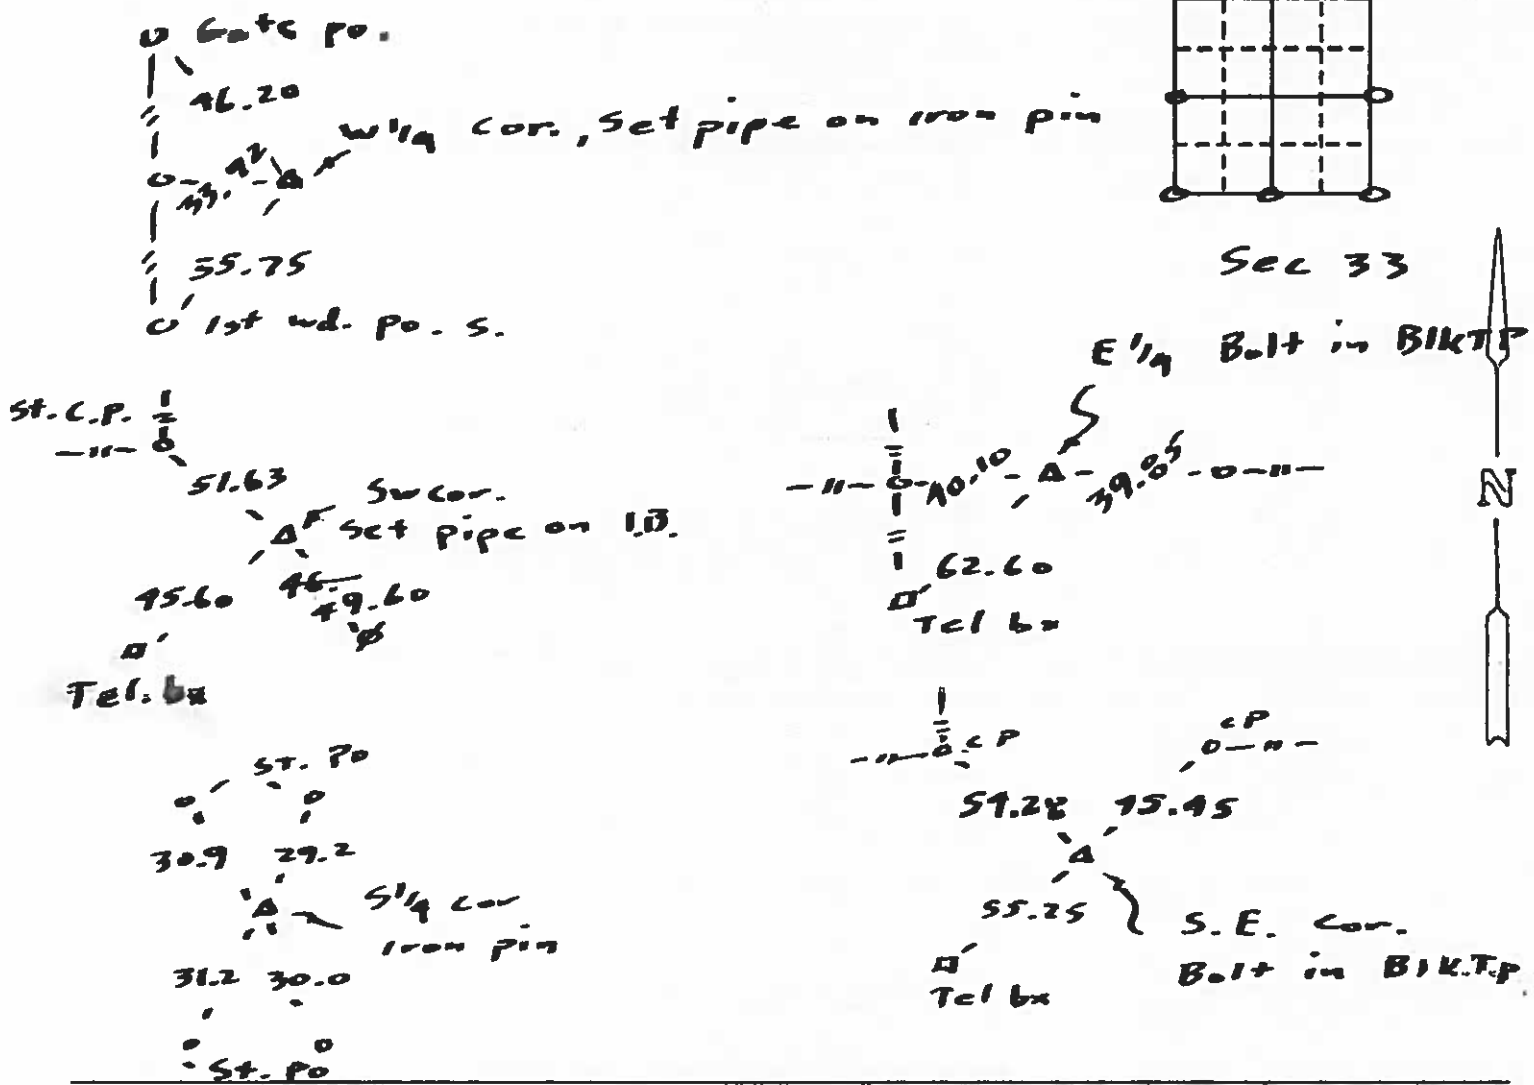 Gate po.
46.20
W 1/4 cor., Set pipe on iron pin
33.42
35.75
1st wd. po. s.
Sec 33
E 1/4 Bolt in BlkTP
St. C.P.
51.63
SW cor.
Set pipe on I.B.
45.60
46.
49.60
Tel. bx
40.10
39.05
62.60
Tel bx
N
St. Po
30.9 29.2
S 1/4 cor
iron pin
31.2 30.0
St. Po
CP
CP
54.28 45.45
55.25
S. E. Cor.
Bolt in Blk.T.P.
Tel bx